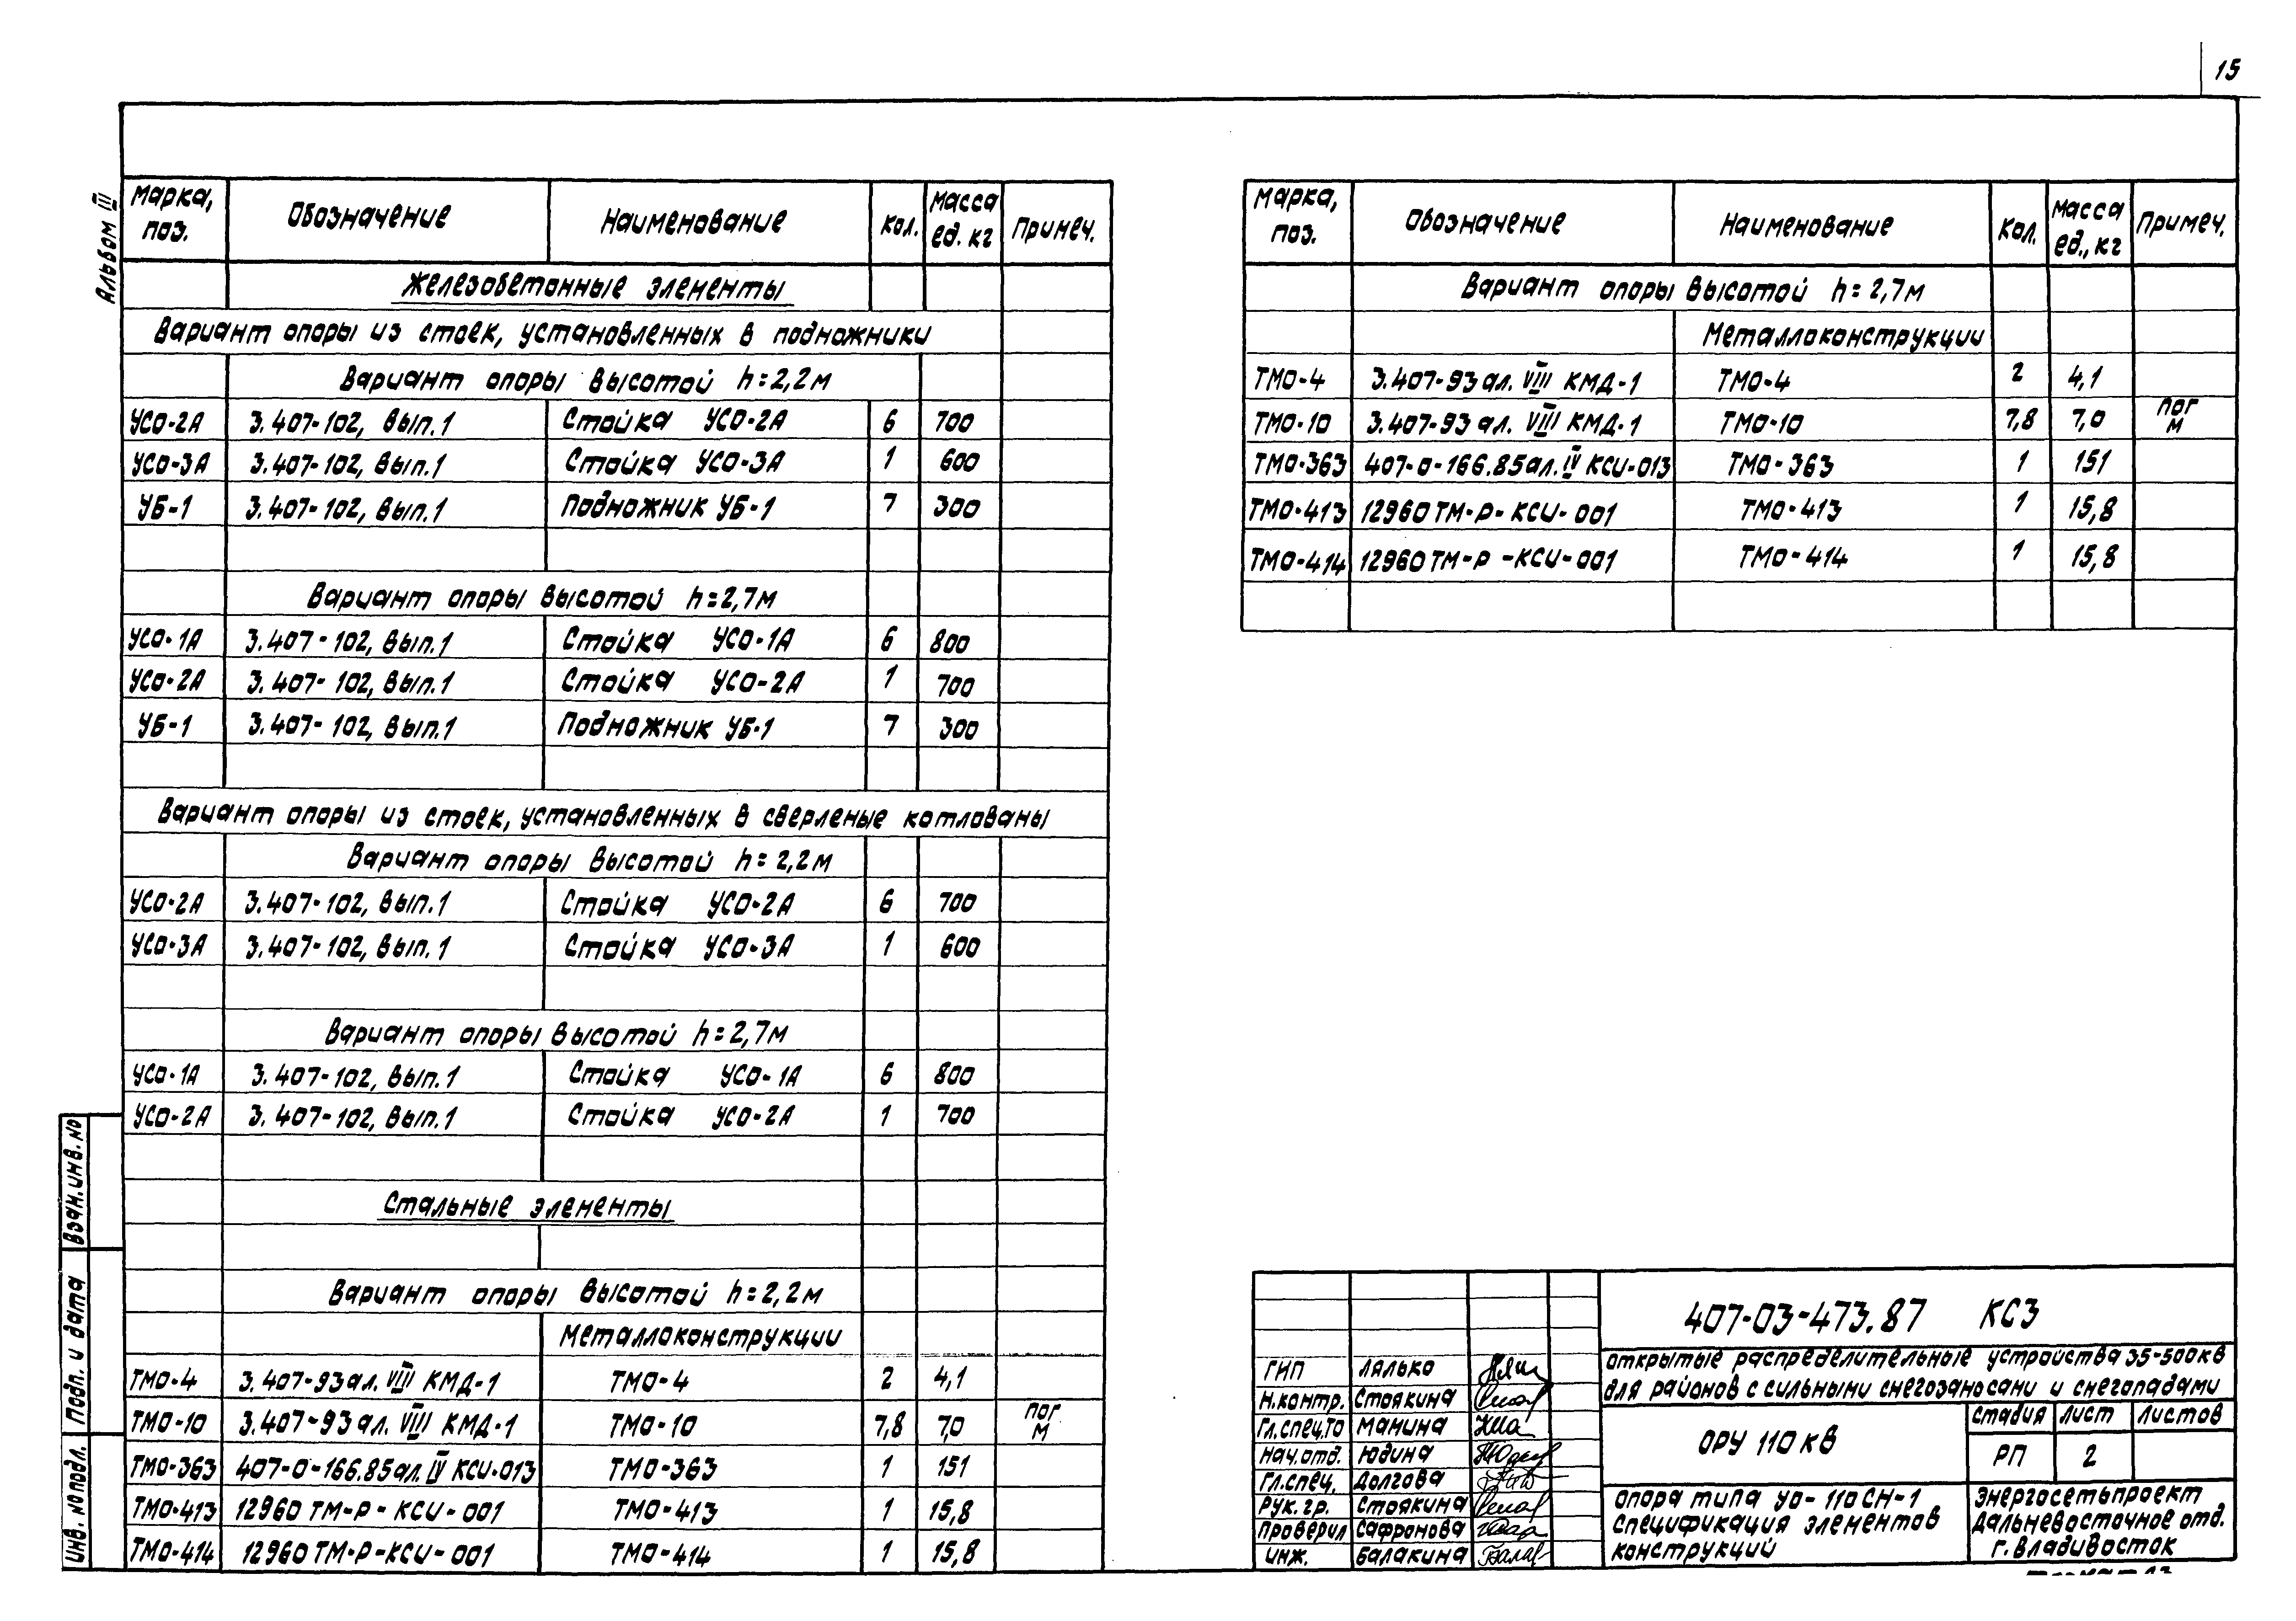 15
Альбом III
Марка, поз. Обозначение Наименование Кол. Масса ед. кг Примеч.
Железобетонные элементы
Вариант опоры из стоек, установленных в подножники
Вариант опоры высотой h=2,2м
УСО-2А 3.407-102, вып.1 Стойка УСО-2А 6 700
УСО-3А 3.407-102, вып.1 Стойка УСО-3А 1 600
УБ-1 3.407-102, вып.1 Подножник УБ-1 7 300
Вариант опоры высотой h=2,7м
УСО-1А 3.407-102, вып.1 Стойка УСО-1А 6 800
УСО-2А 3.407-102, вып.1 Стойка УСО-2А 1 700
УБ-1 3.407-102, вып.1 Подножник УБ-1 7 300
Вариант опоры из стоек, установленных в сверленые котлованы
Вариант опоры высотой h=2,2м
УСО-2А 3.407-102, вып.1 Стойка УСО-2А 6 700
УСО-3А 3.407-102, вып.1 Стойка УСО-3А 1 600
Вариант опоры высотой h=2,7м
УСО-1А 3.407-102, вып.1 Стойка УСО-1А 6 800
УСО-2А 3.407-102, вып.1 Стойка УСО-2А 1 700
Стальные элементы
Вариант опоры высотой h=2,2м
Металлоконструкции
ТМО-4 3.407-93 ал. VIII КМД-1 ТМО-4 2 4,1
ТМО-10 3.407-93 ал. VIII КМД-1 ТМО-10 7,8 7,0 пог м
ТМО-363 407-0-166.85 ал. IV КСИ-013 ТМО-363 1 151
ТМО-413 12960 ТМ-Р-КСИ-001 ТМО-413 1 15,8
ТМО-414 12960 ТМ-Р-КСИ-001 ТМО-414 1 15,8
Марка, поз. Обозначение Наименование Кол. Масса ед., кг Примеч.
Вариант опоры высотой h=2,7м
Металлоконструкции
ТМО-4 3.407-93 ал. VIII КМД-1 ТМО-4 2 4,1
ТМО-10 3.407-93 ал. VIII КМД-1 ТМО-10 7,8 7,0 пог м
ТМО-363 407-0-166.85 ал. IV КСИ-013 ТМО-363 1 151
ТМО-413 12960 ТМ-Р-КСИ-001 ТМО-413 1 15,8
ТМО-414 12960 ТМ-Р-КСИ-001 ТМО-414 1 15,8
Взам. инв. №
Подп. и дата
Инв. № подл.
407-03-473.87 КС3
ГИП Лялько
Н.контр. Стоякина
Гл.спец.ТО Манина
Нач.отд. Юдина
Гл.спец. Долгова
Рук.гр. Стоякина
Проверил Сафронова
Инж. Балакина
Открытые распределительные устроиства 35-500кв
для районов с сильными снегозаносами и снегопадами
ОРУ 110 кв
Стадия Лист Листов
РП 2
Опора типа УО-110СН-1
Спецификация элементов
конструкций
Энергосетьпроект
Дальневосточное отд.
г. Владивосток